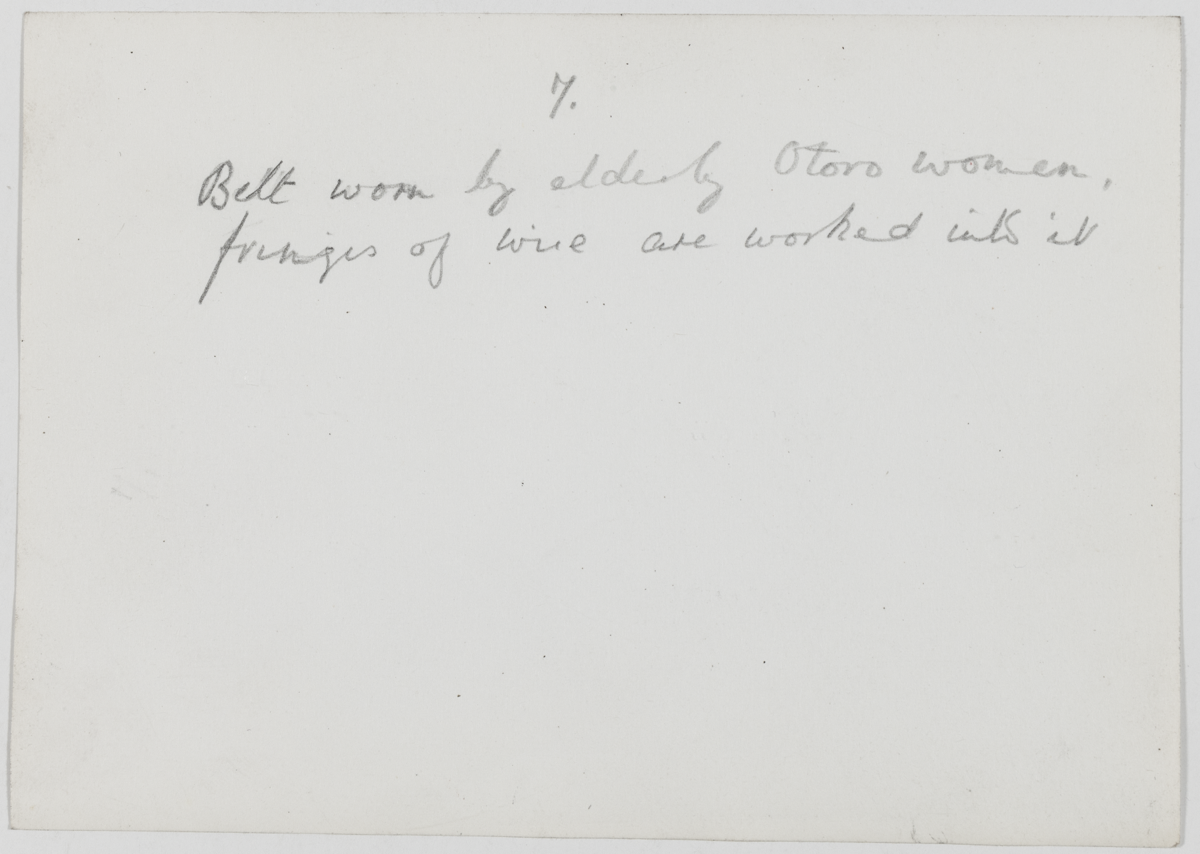 7.
Belt worn by elderly Otoro women,
fringes of wire are worked into it